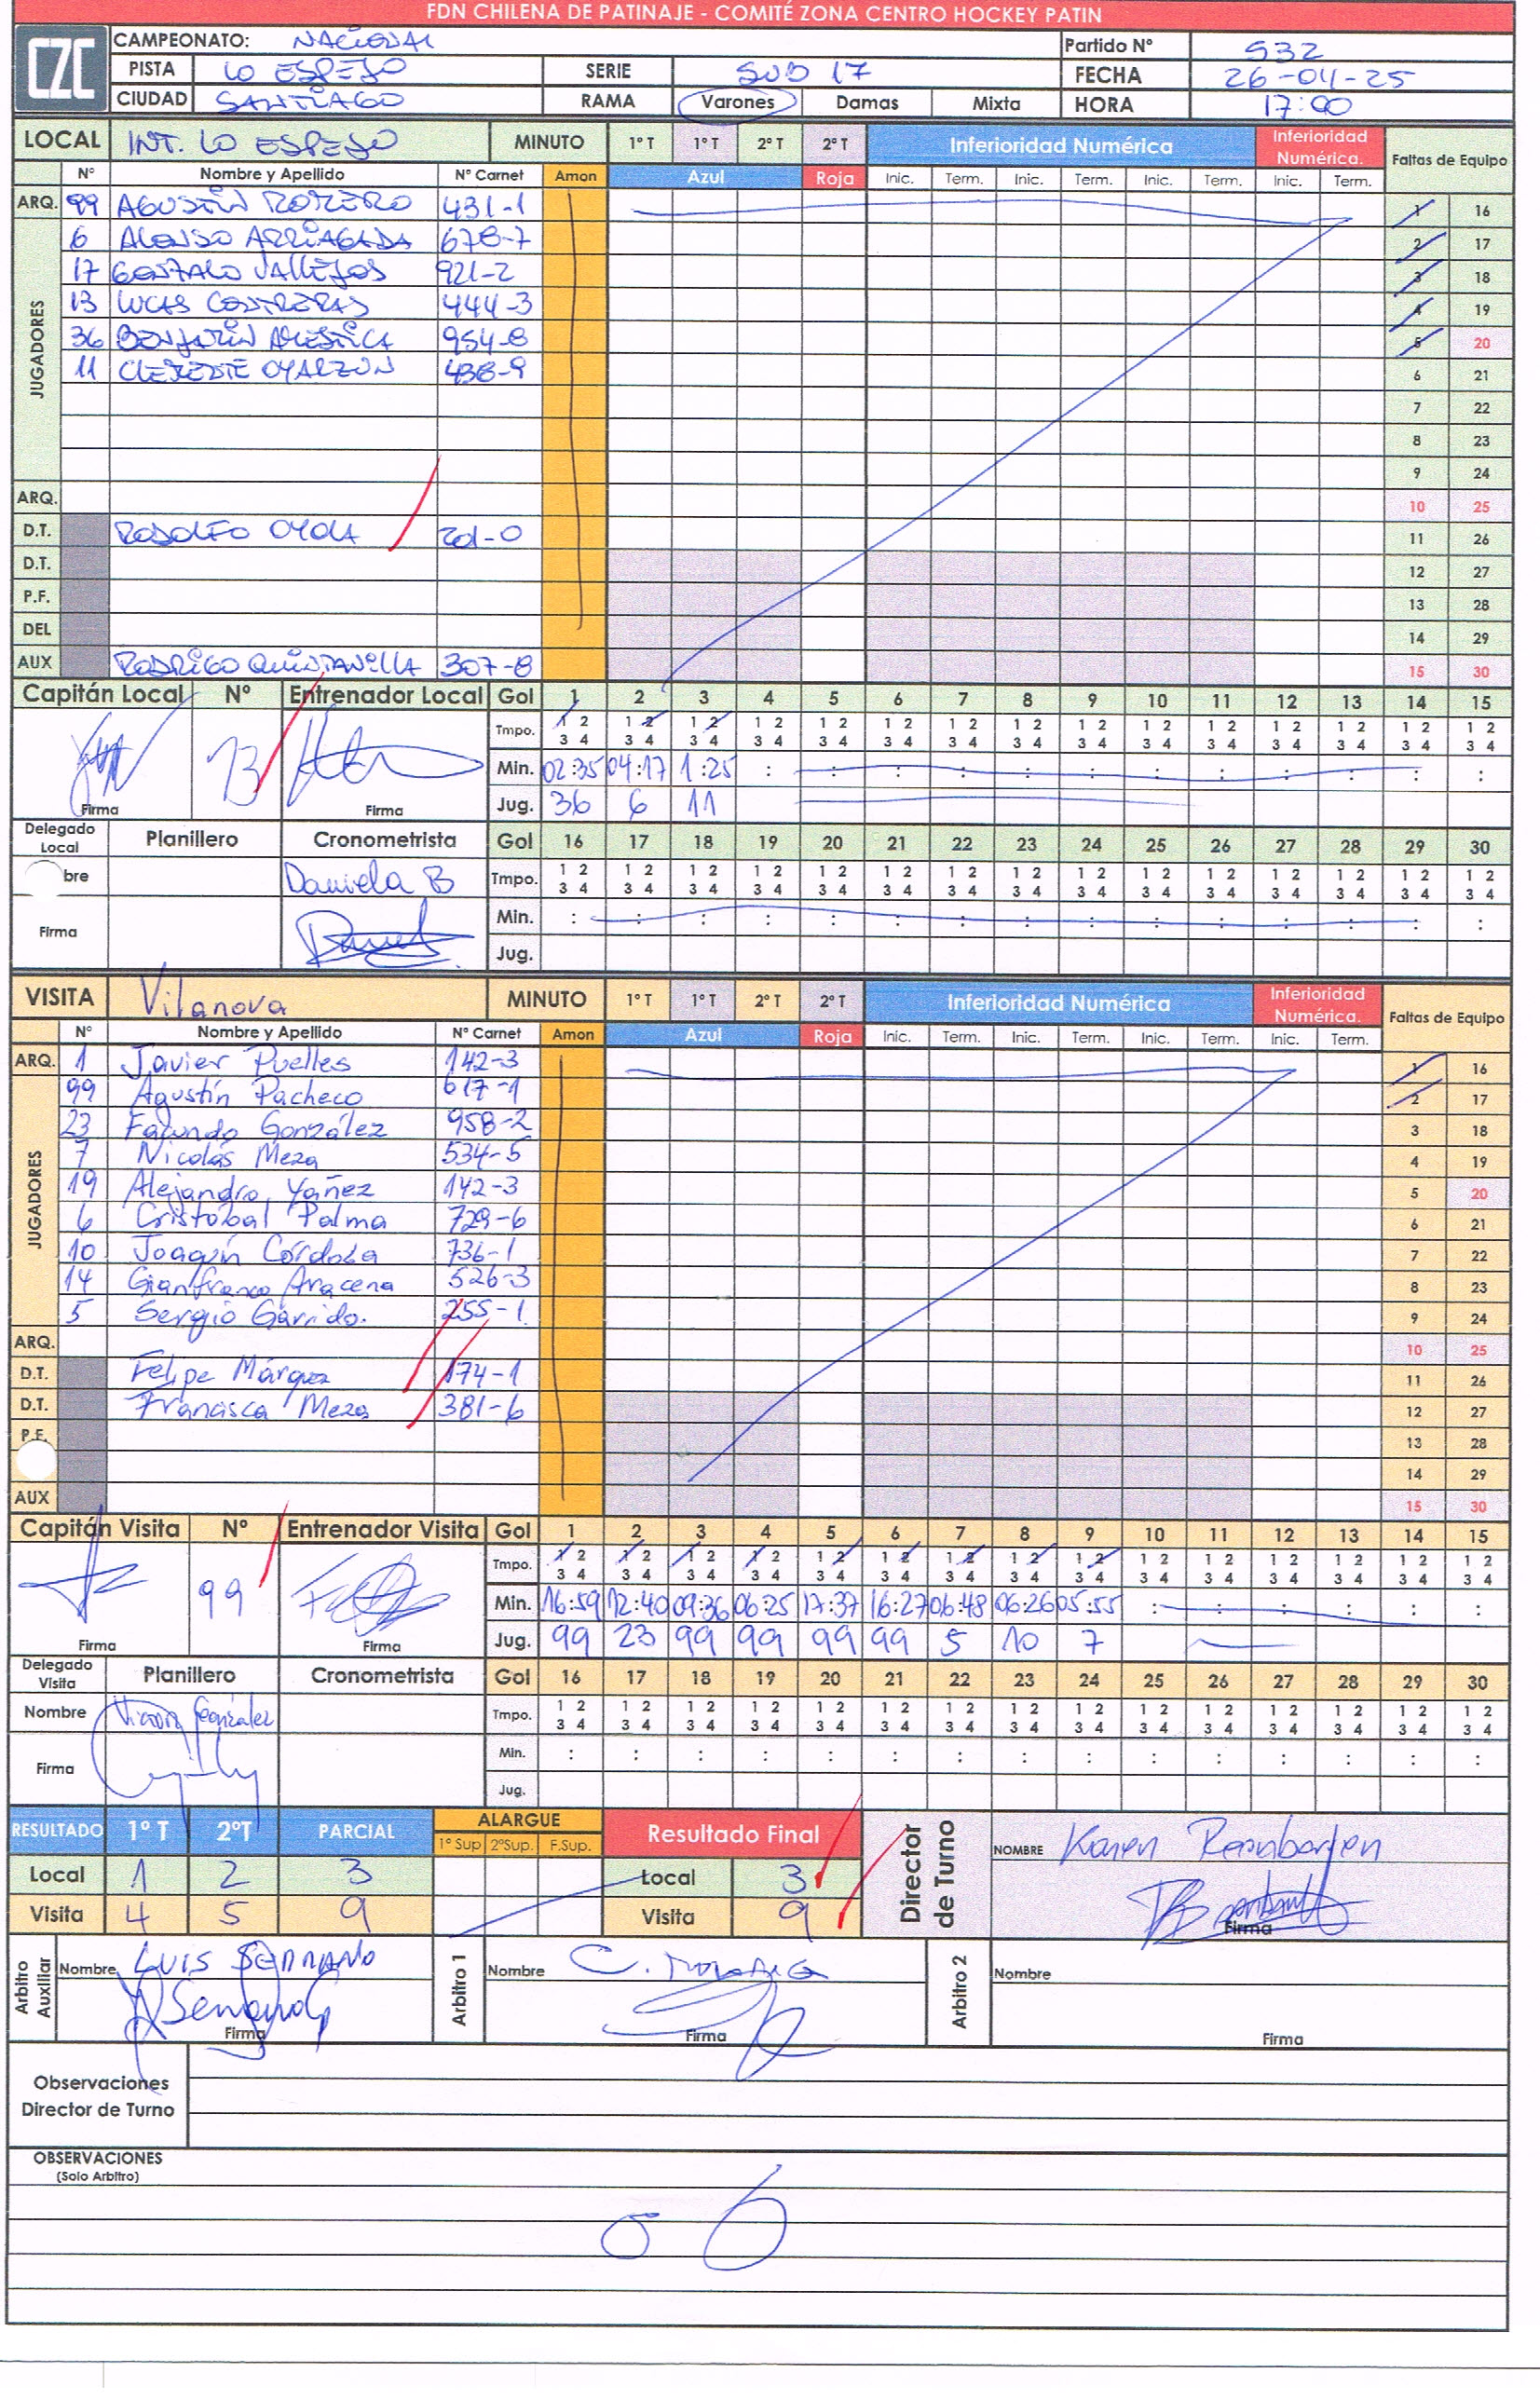 FDN CHILENA DE PATINAJE - COMITÉ ZONA CENTRO HOCKEY PATIN
CZC CAMPEONATO: NACIONAL Partido Nº 932
PISTA LO ESPEJO SERIE SUB 17 FECHA 26-04-25
CIUDAD SANTIAGO RAMA Varones Damas Mixta HORA 17:00
LOCAL INT. LO ESPEJO MINUTO 1º T 1º T 2º T 2º T Inferioridad Numérica Inferioridad Numérica. Faltas de Equipo
Nº Nombre y Apellido Nº Carnet Amon Azul Roja Inic. Term. Inic. Term. Inic. Term. Inic. Term.
ARQ. 99 AGUSTÍN ROMERO 431-1 1 16
JUGADORES
6 ALONSO ARRIAGADA 678-7 2 17
17 GONZALO VALLEJOS 921-2 3 18
13 LUCAS CONTRERAS 444-3 4 19
36 BENJAMÍN 954-8 5 20
11 CLEMENTE OYARZÚN 438-9 6 21
7 22
8 23
9 24
ARQ. 10 25
D.T. RODOLFO OYOLA 201-0 11 26
D.T. 12 27
P.F. 13 28
DEL 14 29
AUX RODRIGO QUINTANILLA 307-8 15 30
Capitán Local Nº Entrenador Local Gol 1 2 3 4 5 6 7 8 9 10 11 12 13 14 15
Tmpo. 1 2 1 2 1 2 1 2 1 2 1 2 1 2 1 2 1 2 1 2 1 2 1 2 1 2 1 2 1 2
3 4 3 4 3 4 3 4 3 4 3 4 3 4 3 4 3 4 3 4 3 4 3 4 3 4 3 4 3 4
13 Min. 02:35 04:17 1:25 : : : : : : : : : : : :
Firma Firma Jug. 36 6 11
Delegado Local Planillero Cronometrista Gol 16 17 18 19 20 21 22 23 24 25 26 27 28 29 30
bre Daniela B Tmpo. 1 2 1 2 1 2 1 2 1 2 1 2 1 2 1 2 1 2 1 2 1 2 1 2 1 2 1 2 1 2
3 4 3 4 3 4 3 4 3 4 3 4 3 4 3 4 3 4 3 4 3 4 3 4 3 4 3 4 3 4
Firma Min. : : : : : : : : : : : : : : :
Jug.
VISITA Vilanova MINUTO 1º T 1º T 2º T 2º T Inferioridad Numérica Inferioridad Numérica. Faltas de Equipo
Nº Nombre y Apellido Nº Carnet Amon Azul Roja Inic. Term. Inic. Term. Inic. Term. Inic. Term.
ARQ. 1 Javier Puelles 142-3 1 16
JUGADORES
99 Agustín Pacheco 617-1 2 17
23 Facundo González 958-2 3 18
7 Nicolás Meza 534-5 4 19
19 Alejandro Yañez 142-3 5 20
6 Cristóbal Palma 729-6 6 21
10 Joaquín Córdoba 736-1 7 22
14 Gianfranco Aracena 526-3 8 23
5 Sergio Garrido. 255-1 9 24
ARQ. 10 25
D.T. Felipe Márquez 174-1 11 26
D.T. Francisca Meza 381-6 12 27
P.F. 13 28
14 29
AUX 15 30
Capitán Visita Nº Entrenador Visita Gol 1 2 3 4 5 6 7 8 9 10 11 12 13 14 15
Tmpo. 1 2 1 2 1 2 1 2 1 2 1 2 1 2 1 2 1 2 1 2 1 2 1 2 1 2 1 2 1 2
3 4 3 4 3 4 3 4 3 4 3 4 3 4 3 4 3 4 3 4 3 4 3 4 3 4 3 4 3 4
99 Min. 16:59 12:40 09:36 06:25 17:37 16:27 06:48 06:26 05:55 : : : : : :
Firma Firma Jug. 99 23 99 99 99 99 5 10 7
Delegado Visita Planillero Cronometrista Gol 16 17 18 19 20 21 22 23 24 25 26 27 28 29 30
Nombre Victor González Tmpo. 1 2 1 2 1 2 1 2 1 2 1 2 1 2 1 2 1 2 1 2 1 2 1 2 1 2 1 2 1 2
3 4 3 4 3 4 3 4 3 4 3 4 3 4 3 4 3 4 3 4 3 4 3 4 3 4 3 4 3 4
Firma Min. : : : : : : : : : : : : : : :
Jug.
RESULTADO 1º T 2ºT PARCIAL ALARGUE Resultado Final Director de Turno NOMBRE Karen
1º Sup 2ºSup. F.Sup.
Local 1 2 3 Local 3
Visita 4 5 9 Visita 9 Firma
Arbitro Auxiliar Nombre LUIS SERRANO Arbitro 1 Nombre C. Arbitro 2 Nombre
Firma Firma Firma
Observaciones
Director de Turno
OBSERVACIONES
(Solo Arbitro)